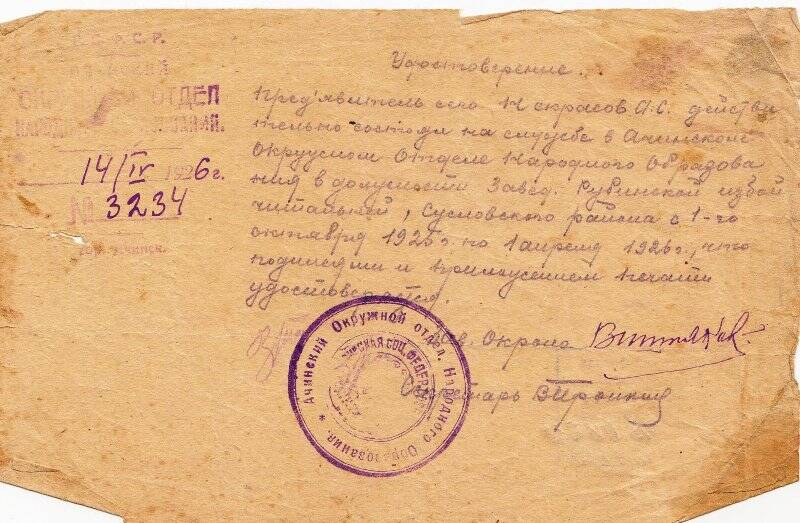 Р. С. Ф. С. Р.
ОТДЕЛ
14/IV 1926 г.
№ 3234
гор. Ачинск.
Удостоверение.
Пред'явитель сего Некрасов А.С. действи
тельно состоял на службе в Ачинском
Окружном Отделе Народного Образова
ния в должности Завед. Рубинской избой
читальней, Сусловского района с 1-го
октября 1925 г. по 1 апреля 1926 г., что
подписями и приложением печати
удостоверяется.
Зав. Окроно
Секретарь
Ачинский Окружной отдел. Народного Образования. *
СОЦ. ФЕДЕР